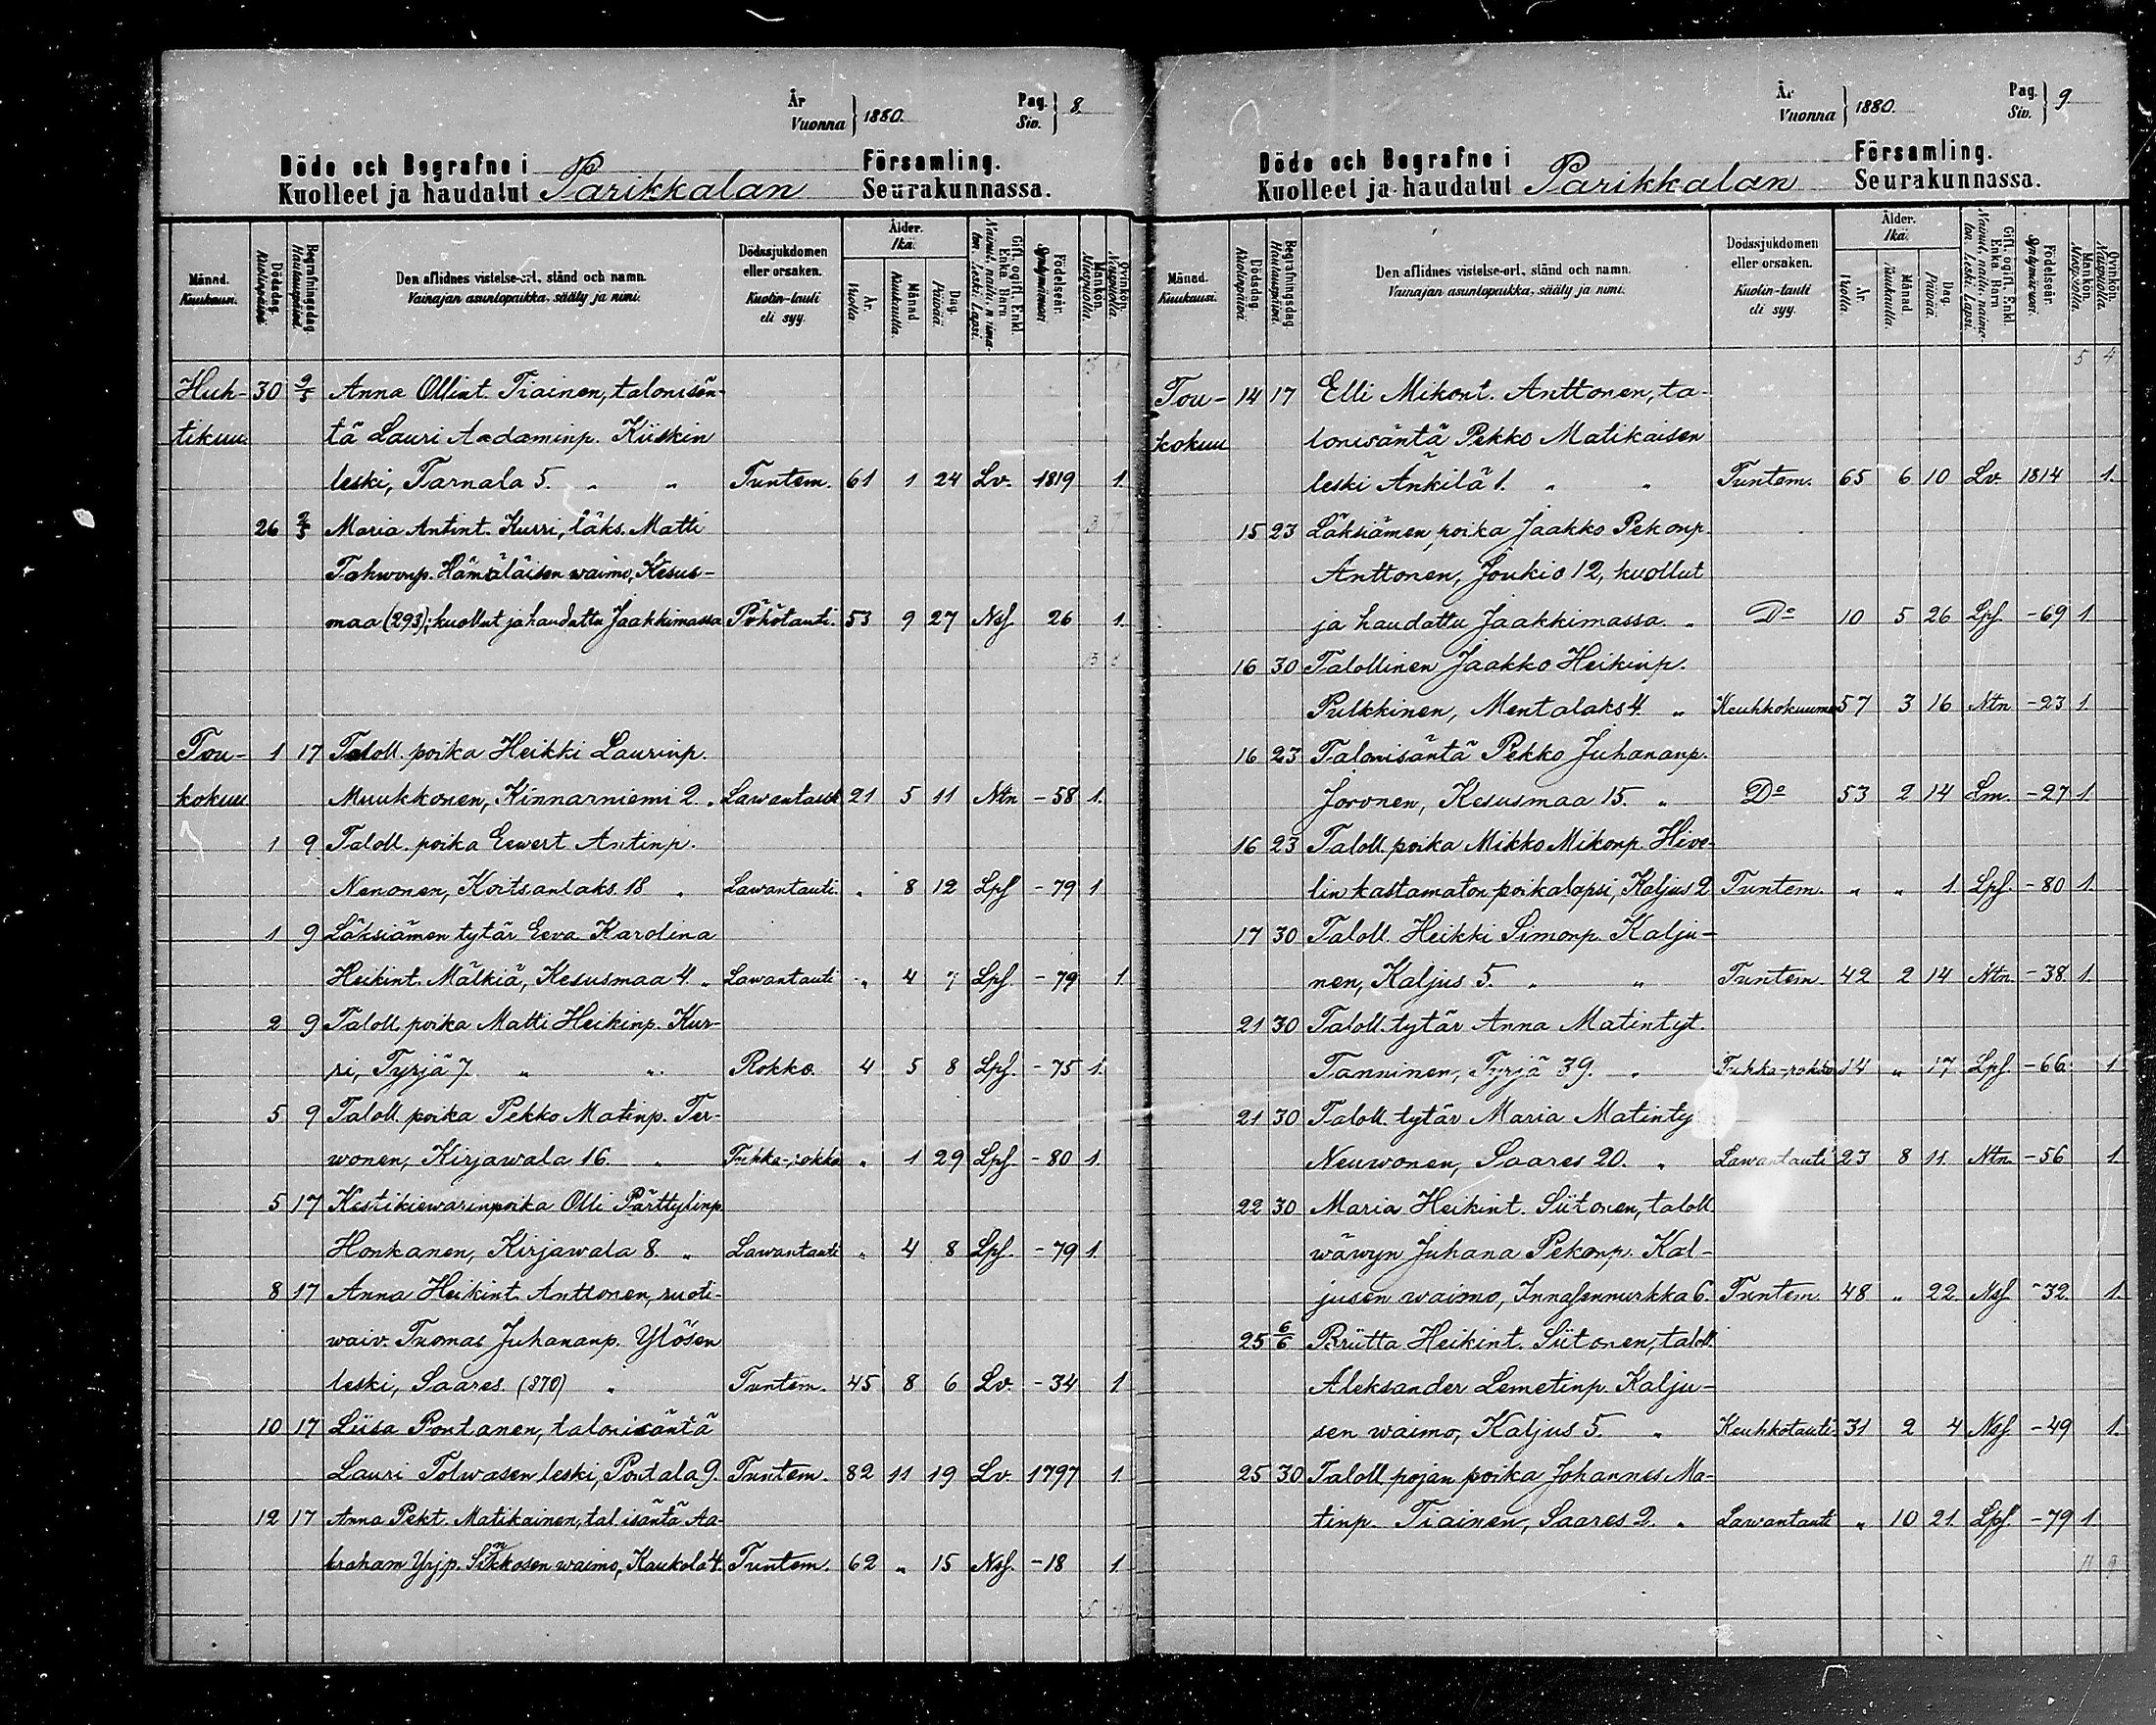 År
Vuonna } 1880.
Pag.
Siv. } 8.
Döde och Begrafne i
Kuolleet ja haudatut Parikkalan
Församling.
Seurakunnassa.
Månad.
Kuukausi.
Dödsdag.
Kuolinpäivä.
Begrafningsdag.
Hautauspäivä.
Den aflidnes vistelse-ort, stånd och namn.
Vainajan asuntopaikka, sääty ja nimi.
Dödssjukdomen
eller orsaken.
Kuolin-tauti
eli syy.
Ålder.
Ikä.
År.
Vuotta.
Månad
Kuukautta.
Dag.
Päivää.
Gift. ogift. Enkl.
Enka. Barn
Födelseår.
Syntymävuosi
Mankön.
Miespuolia.
Qvinkön.
Naispuolia.
Huh- 30 9/5 Anna Ollint. Tiainen, talonisän-
tikuu. tä Lauri Aadaminp. Kiiskin
leski, Tarnala 5. " " Tuntem. 61 1 24 Lv. 1819 1.
26 2/5 Maria Antint. Kurri, läks. Matti
Tahwonp. Hämäläisen waimo, Kesus-
maa (293); kuollut ja haudattu Jaakkimassa Pöhötauti. 53 9 27 Nsf. 26 1.
Tou- 1 17 Taloll. poika Heikki Laurinp.
kokuu Muukkonen, Kinnarniemi 2. " Lawantauti 21 5 11 Ntn -58 1.
1 9 Taloll. poika Eewert Antinp.
Nenonen, Koitsanlaks. 18 " Lawantauti. " 8 12 Lpf -79 1
1 9 Läksiämen tytär Eeva Karolina
Heikint. Mälkiä, Kesusmaa 4. " Lawantauti " 4 7 Lpf. -79 1.
2 9 Taloll. poika Matti Heikinp. Kur-
ri, Tyrjä 7. " " Rokko. 4 5 8 Lpf. -75 1.
5 9 Taloll. poika Pekko Matinp. Ter-
wonen, Kirjawala 16. " Tuhka-rokko " 1 29 Lpf. -80 1.
5 17 Kestikiewarinpoika Olli Pärttylinp
Honkanen, Kirjawala 8. " Lawantauti " 4 8 Lpf. -79 1.
8 17 Anna Heikint. Anttonen, ruoti-
waiv. Tuomas Juhananp. Ylösen
leski, Saares. (870) " Tuntem. 45 8 6 Lv. -34 1
10 17 Liisa Pontanen, talonisäntä
Lauri Tolwasen leski, Pontala 9. Tuntem. 82 11 19 Lv. 1797 1.
12 17 Anna Pekt. Matikainen, tal. isäntä Aa-
braham Yrjp. Sinkkosen waimo, Kaukola 4. Tuntem. 62 " 15 Nsf. -18 1.
År
Vuonna } 1880.
Pag.
Siv. } 9
Döde och Begrafne i
Kuolleet ja haudatut Parikkalan
Församling.
Seurakunnassa.
Månad.
Kuukausi.
Dödsdag.
Kuolinpäivä.
Begrafningsdag.
Hautauspäivä.
Den aflidnes vistelse-ort, stånd och namn.
Vainajan asuntopaikka, sääty ja nimi.
Dödssjukdomen
eller orsaken.
Kuolin-tauti
eli syy.
Ålder.
Ikä.
År.
Vuotta.
Månad
Kuukautta.
Dag.
Päivää.
Gift. ogift. Enkl.
Enka. Barn
Födelseår.
Syntymävuosi.
Mankön.
Miespuolia.
Qvinkön.
Naispuolia.
5 4
Tou- 14 17 Elli Mikont. Anttonen, ta-
kokuu lonisäntä Pekko Matikaisen
leski Änkilä 1. " " Tuntem. 65 6 10 Lv. 1814 1.
15 23 Läksiämen poika Jaakko Pekonp.
Anttonen, Joukio 12, kuollut
ja haudattu Jaakkimassa. " Do 10 5 26 Lpf. -69 1.
16 30 Talollinen Jaakko Heikinp.
Pulkkinen, Mentalaks 4. " Keuhkokuume 57 3 16 Ntn -23 1.
16 23 Talonisäntä Pekko Juhananp.
Joronen, Kesusmaa 15. " Do 53 2 14 Lm. -27 1.
16 23 Taloll. poika Mikko Mikonp. Hive-
lin kastamaton poikalapsi, Kaljus 2 Tuntem. " " 1. Lpf. -80 1.
17 30 Taloll. Heikki Simonp. Kalju-
nen, Kaljus 5. " " Tuntem. 42 2 14 Ntn. -38. 1.
21 30 Taloll. tytär Anna Matintyt.
Tanninen, Tyrjä 39. " Tuhka-rokko 14 " 17 Lpf. -66. 1
21 30 Taloll. tytär Maria Matinty
Neuwonen, Saares 20. " Lawantauti 23 8 11. Ntn. -56 1.
22 30 Maria Heikint. Siitonen, taloll.
wäwyn Juhana Pekonp. Kal-
jusen waimo, Innasennurkka 6. Tuntem. 48 " 22. Nsf -32. 1.
25 6/6 Briitta Heikint. Siitonen, taloll.
Aleksander Lemetinp. Kalju-
sen waimo, Kaljus 5. " Keuhkotauti 31 2 4 Nsf -49 1.
25 30 Taloll. pojan poika Johannes Ma-
tinp. Tiainen, Saares 2. " Lawantauti " 10 21. Lpf. -79 1
11 9